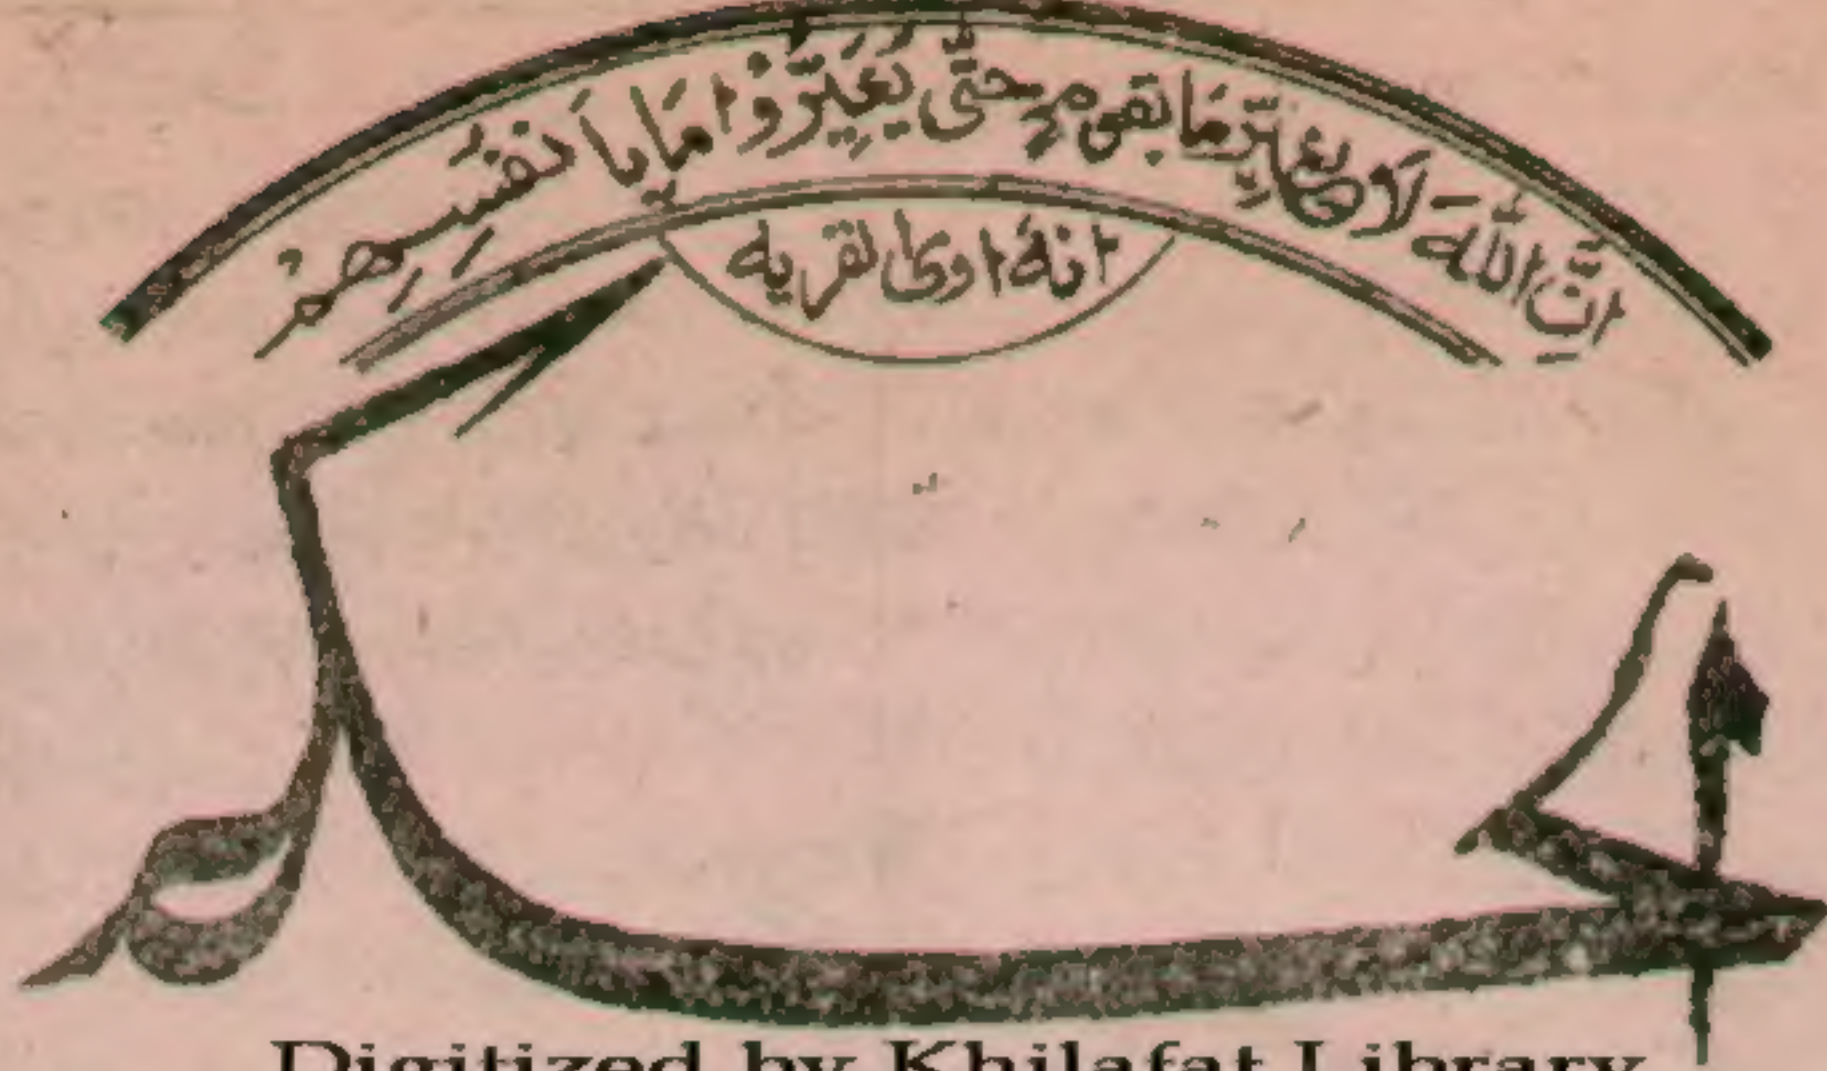 اِنَّ اللّٰهَ لَا يُغَيِّرُ مَا بِقَومٍ حَتّٰى يُغَيِّرُوْا مَا بِاَنفُسِهِمْ
انهٗ اوی القریه
الحکم
Digitized by Khilafat Library